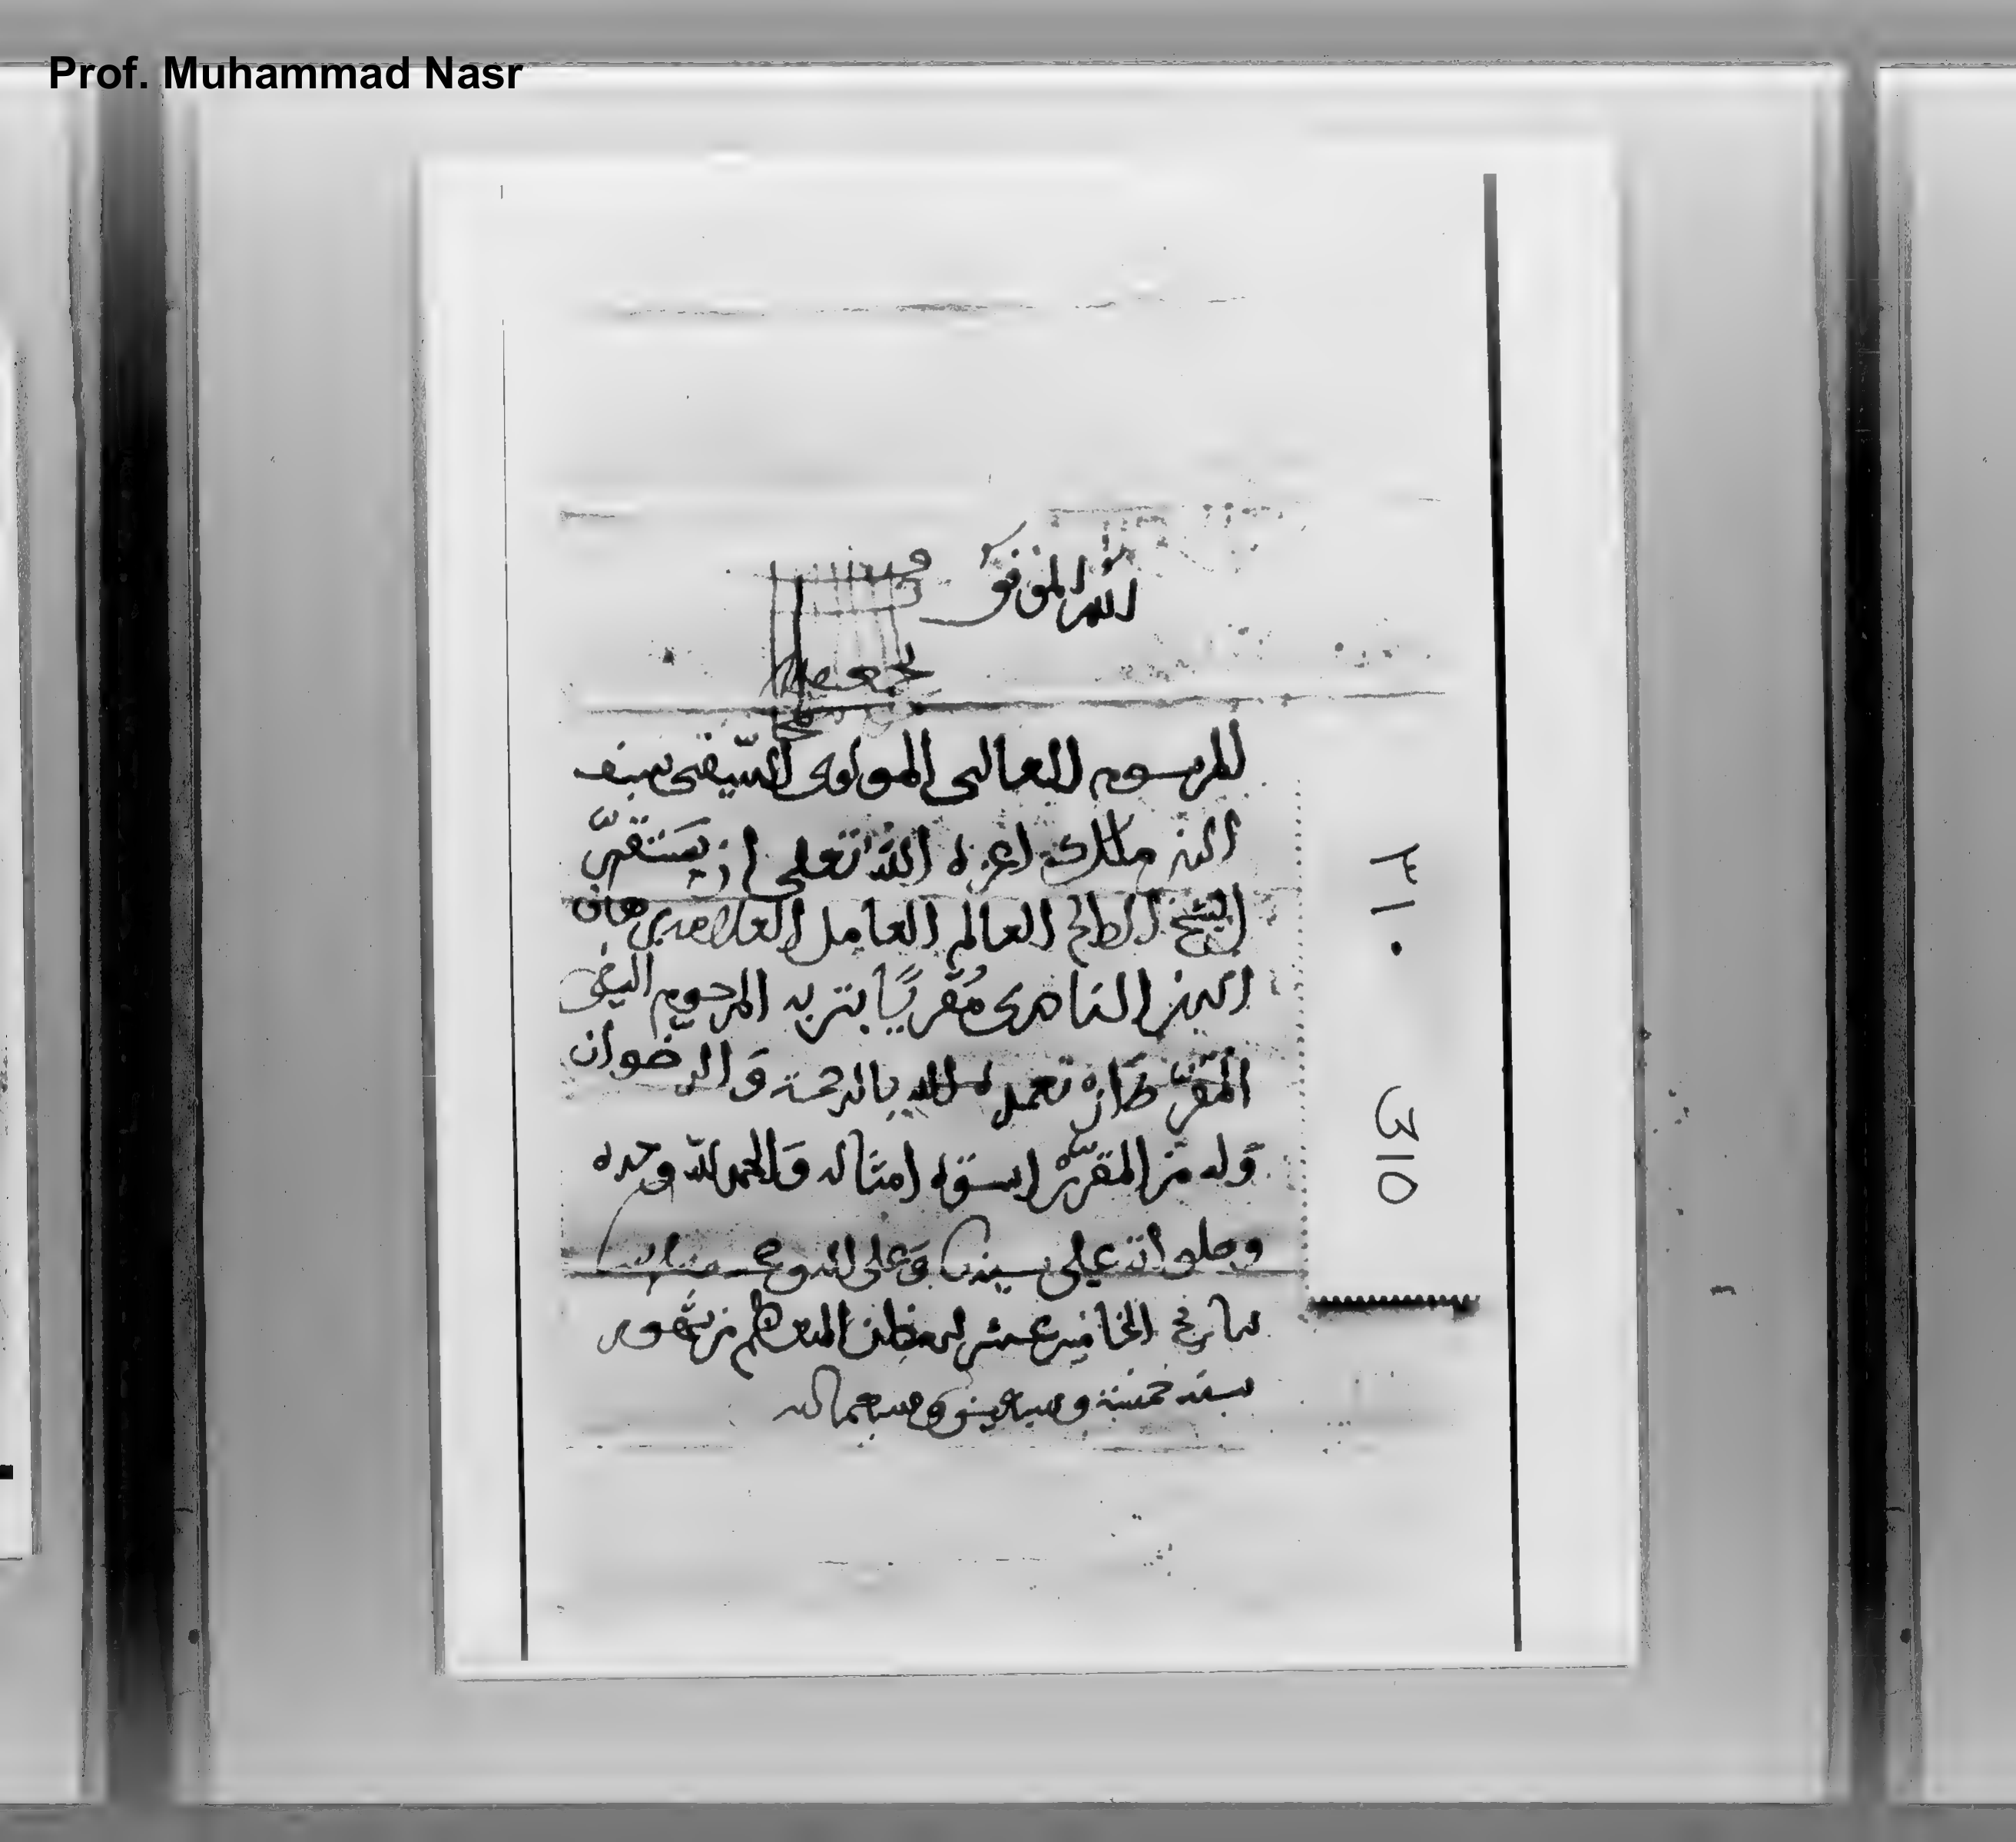 Prof. Muhammad Nasr
الله الموفق
المرسوم العالى المولوى السيفى سيف
الدين ملك اعزه الله تعلى ان يستقر
الشيخ الصالح العالم العامل العلامه برهان
الدين الناصرى مقريًا بتربه المرحوم السيفى
المقر طاز تغمده الله بالرحمة وَالرضوان
وله من المقرر اسوة امثاله وَالحمد لله وحده
وصلواته على سيدنا وَعلى اله وصحبه
بتاريخ الخامس عشر رمضان المعظم من شهور
سنه خمسة وسبعين وسبعمائه
٣١٠
310